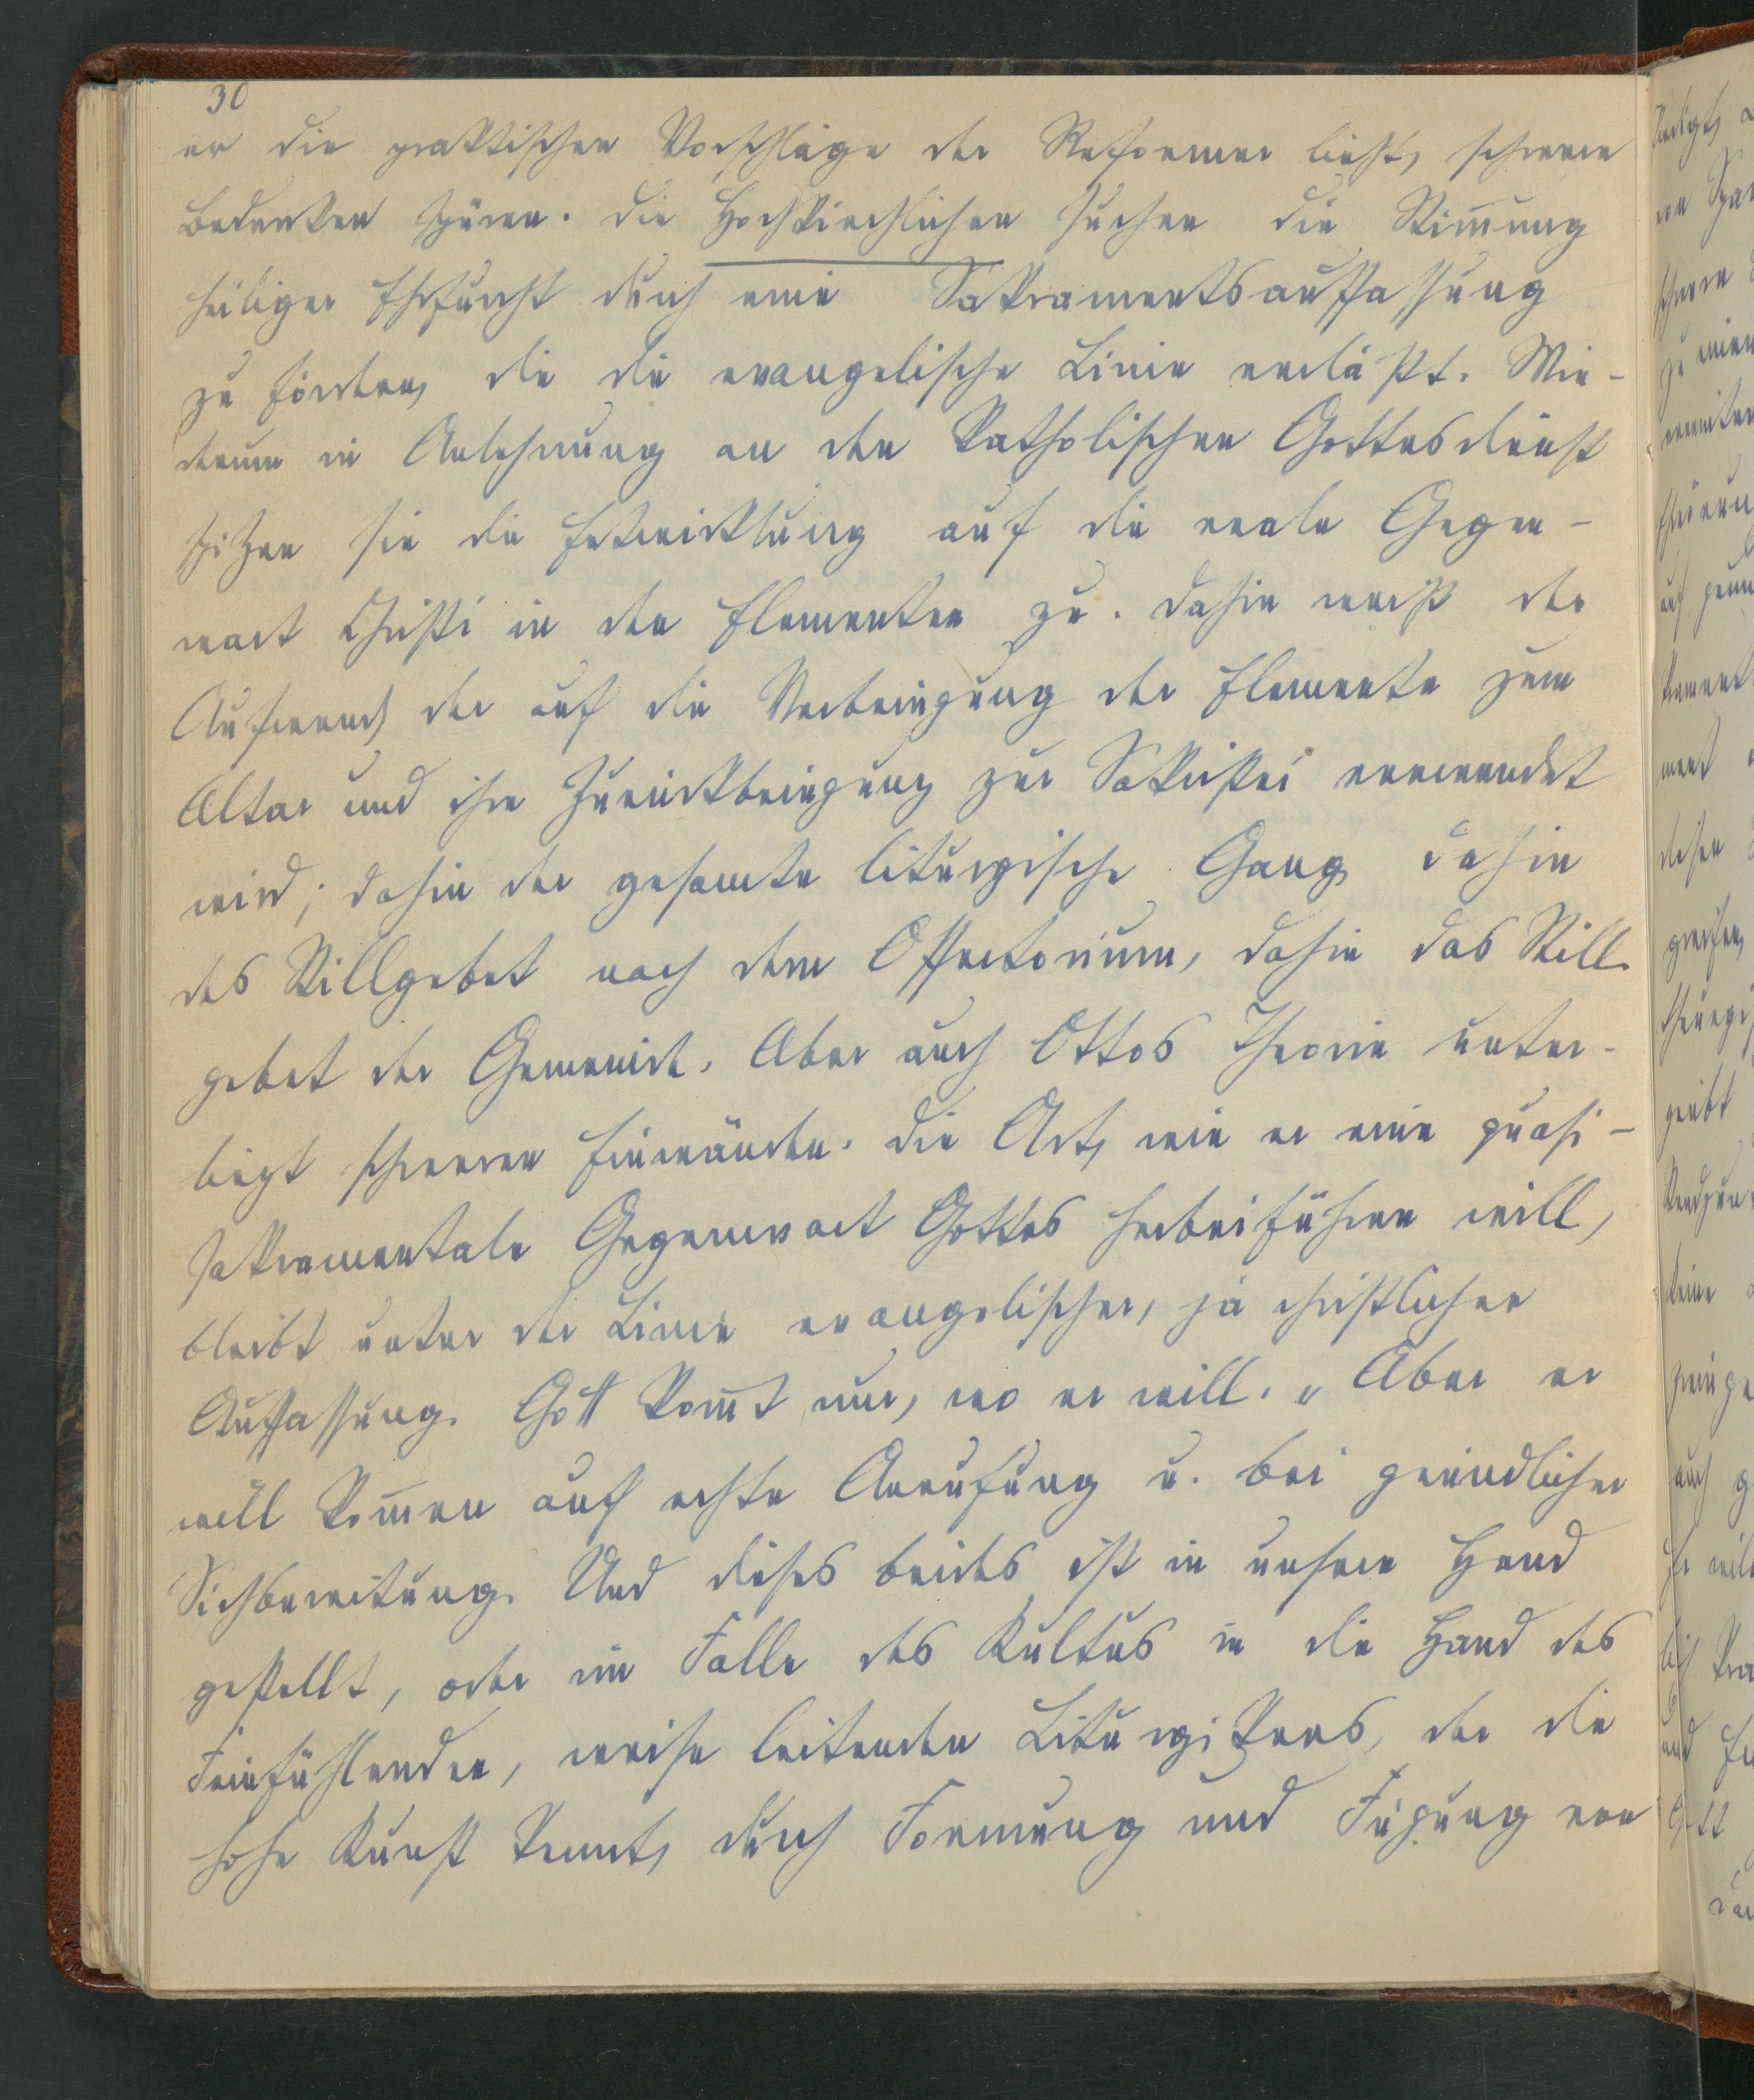 30
er die praktischen Vorschläge der Reformer liest, schwere
Bedenken spüren. Die Hochkirchlichen suchen die Stim̄ung
heiliger Ehrfurcht durch eine Sakramentsauffassung
zu fördern, die die evangelische Linie verläßt. Wie-
derum in Anlehnung an den katholischen Gottesdienst
spitzen sie die Entwicklung auf die reale Gegen-
wart Christi in den Elementen zu. Dahin weist der
Aufwand, der auf die Verbringung der Elemente zum
Altar und ihre Zurückbringung zur Sakristei verwendet
wird; dahin der gesamte liturgische Gang dahin
das Stillgebet nach dem Offertorium, dahin das Still-
gebet der Gemeinde. Aber auch Ottos Theorie unter-
liegt schweren Einwänden. Die Art, wie er eine quasi-
sakramentale Gegenwart Gottes herbeiführen will,
bleibt unter der Linie evangelischer, ja christlicher
Auffassung. Gott kom̄t nur, wo er will. „Aber er
will kom̄en auf rechte Anrufung u. bei gründlicher
Sichbereitung. Und dieses beides ist in unsere Hand
gestellt, oder im Falle des Kultus in die Hand des
Feinfühlenden, weise leitenden Liturgikers, der die
hohe Kunst kennt, durch Formung und Fügung von